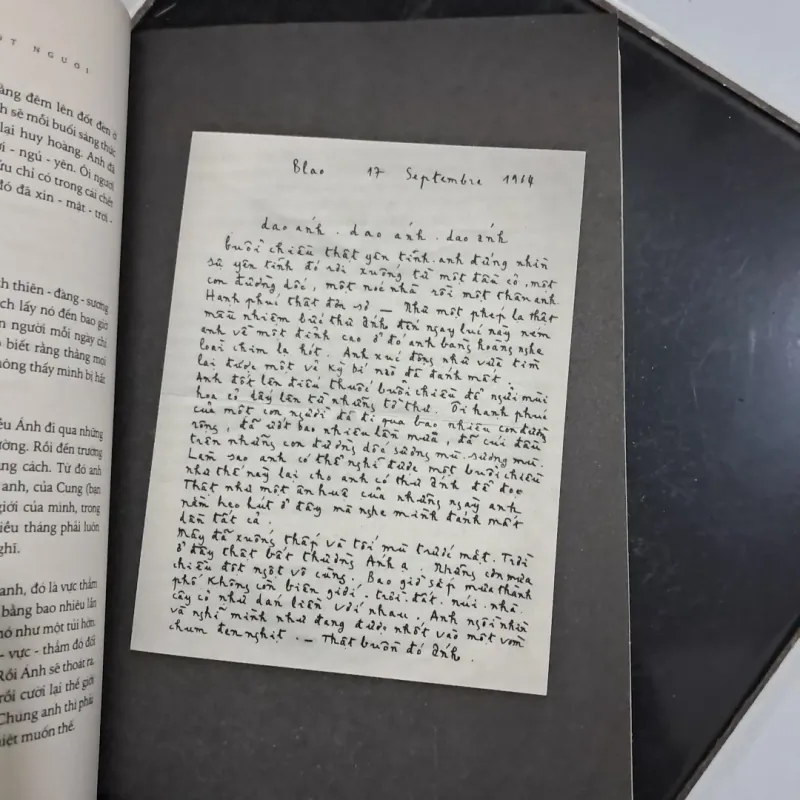 NGƯỜI
ằng đêm lên đốt đèn ở
h sẽ mỗi buổi sáng thức
lại huy hoàng. Anh đã
ơi - ngủ - yên. Ôi người
ứu chỉ có trong cái chết
đó đã xin - mặt - trời -
h thiên - đàng - sương
ch lấy nó đến bao giờ
n người mỗi ngày chỉ
o biết rằng tháng mọi
ông thấy mình bị hất
ều Ánh đi qua những
ường. Rồi đến trường
ng cách. Từ đó anh
anh, của Cung (bạn
giới của mình, trong
iêu tháng phải luôn
ghĩ.
anh, đó là vực thẳm
bằng bao nhiêu lần
nó như một túi hờn.
- vực - thẳm đó đổi
Rồi Ánh sẽ thoát ra.
rồi cười lại thế giới
Chung anh thì phải
iệt muốn thế.
Blao 17 Septembre 1964
dao ánh . dao ánh . dao ánh
buổi chiều thật yên tĩnh. anh đứng nhìn
sự yên tĩnh đó rơi xuống từ một tàu cỏ, một
con đường dốc, một nóc nhà rồi một thân anh
Hạnh phúc thật đơn sơ — Như một phép lạ thật
mầu nhiệm bức thư Ánh đến ngay lúc này ném
anh về một đỉnh cao ở đó anh bàng hoàng nghe
loài chim lạ hót. Anh xúc động như vừa tìm
lại được một vẻ kỳ bí nào đã đánh mất.
Anh đốt lên điếu thuốc buổi chiều để ngửi mùi
hoa cỏ dậy lên từ những tờ thư. Ôi hạnh phúc
của một con người đã đi qua bao nhiêu con đường
rộng, đã ướt bao nhiêu lần mưa, đã cúi đầu
trên những con đường dốc sương mù. sương mù.
Làm sao anh có thể nghĩ được một buổi chiều
như thế này lại cho anh có thư Ánh để đọc
Thật như một ân huệ của những ngày anh
nằm heo hút ở đây mà nghe mình đánh mất
dần tất cả.
Mây đã xuống thấp và tối mù trước mặt. Trời
ở đây thật bất thường Ánh ạ. Những cơn mưa
chiều đột ngột vô cùng. Bao giờ sắp mưa thành
phố không còn biên giới. trời. đất. núi. nhà.
cây cỏ như dán liền với nhau. Anh ngồi nhìn
và nghĩ mình như đang được nhốt vào một vòm
chum đen nghịt. — Thật buồn đó Ánh.